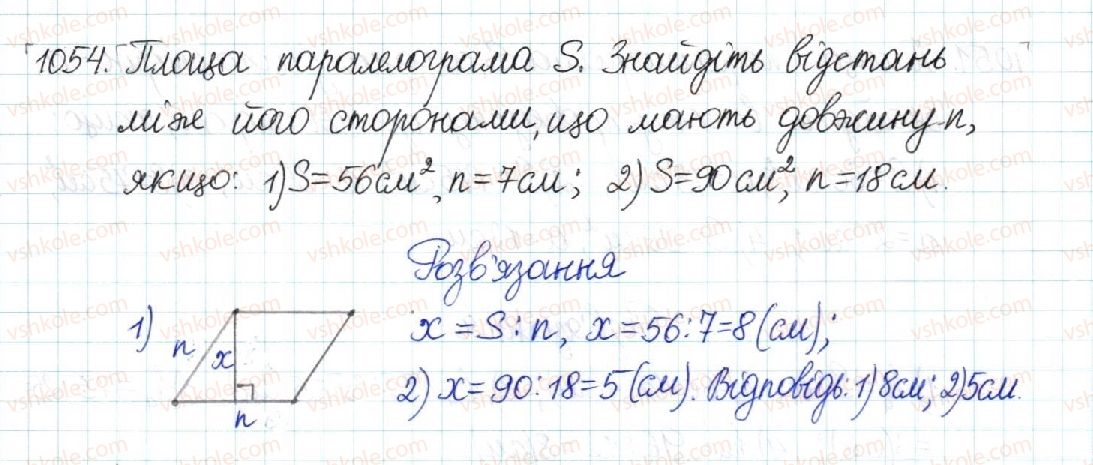 1054. Площа паралелограма S. Знайдіть відстань
між його сторонами, що мають довжину n,
якщо: 1) S=56см², n=7см; 2) S=90см², n=18см.
Розв'язання
1) n x n
x = S : n, x = 56:7=8 (см);
2) x = 90:18=5 (см). Відповідь: 1) 8см; 2) 5см.
vshkole.com